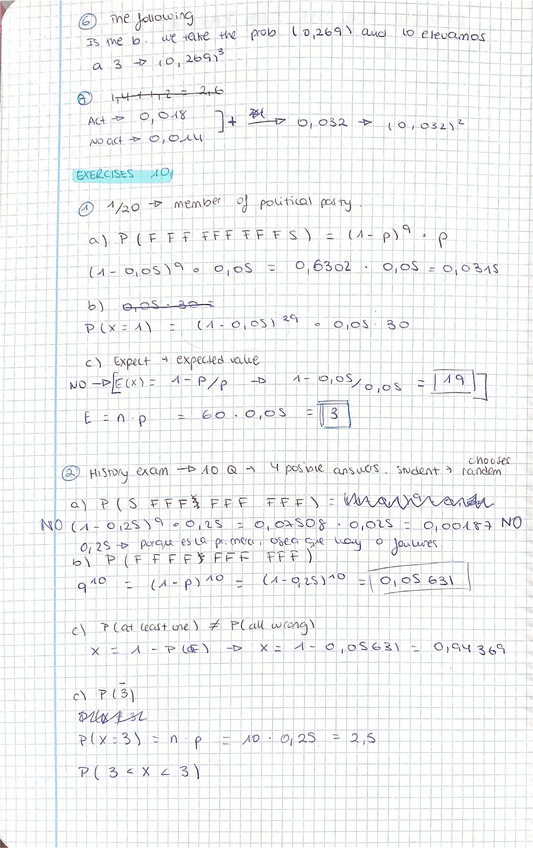 ⑥ The following
Is the b. we take the prob (0,269) and lo elevamos
a 3 → (0,269)³
⑦ 1,4 + 1,2 = 2,6
Act → 0,018
] + → 0,032 → (0,032)²
No act → 0,014
EXERCISES 10
① 1/20 → member of political party.
a) P(F F F FFF FFF S) = (1-p)⁹ · p
(1-0,05)⁹ · 0,05 = 0,6302 · 0,05 = 0,0315
b) 0,05 · 30 =
P(X=1) = (1-0,05)²⁹ · 0,05 · 30
c) Expect → expected value
NO → [E(x) = 1-p/p → 1-0,05/0,05 = 19]
E = n·p = 60 · 0,05 = 3
② History exam → 10 Q → 4 posible answers. Student → chooses random
a) P(S FFF FFF FFF) =
NO (1-0,25)⁹ · 0,25 = 0,07508 · 0,025 = 0,00187 NO
0,25 → porque es la primera, osea que hay 0 failures.
b) P(FFFF FFF FFF)
q¹⁰ = (1-p)¹⁰ = (1-0,25)¹⁰ = 0,05631
c) P(at least one) ≠ P(all wrong)
X = 1 - P(E) → X = 1 - 0,05631 = 0,94369
c) P(3̄)
P(X=3) = n·p = 10 · 0,25 = 2,5
P(3 < X < 3)